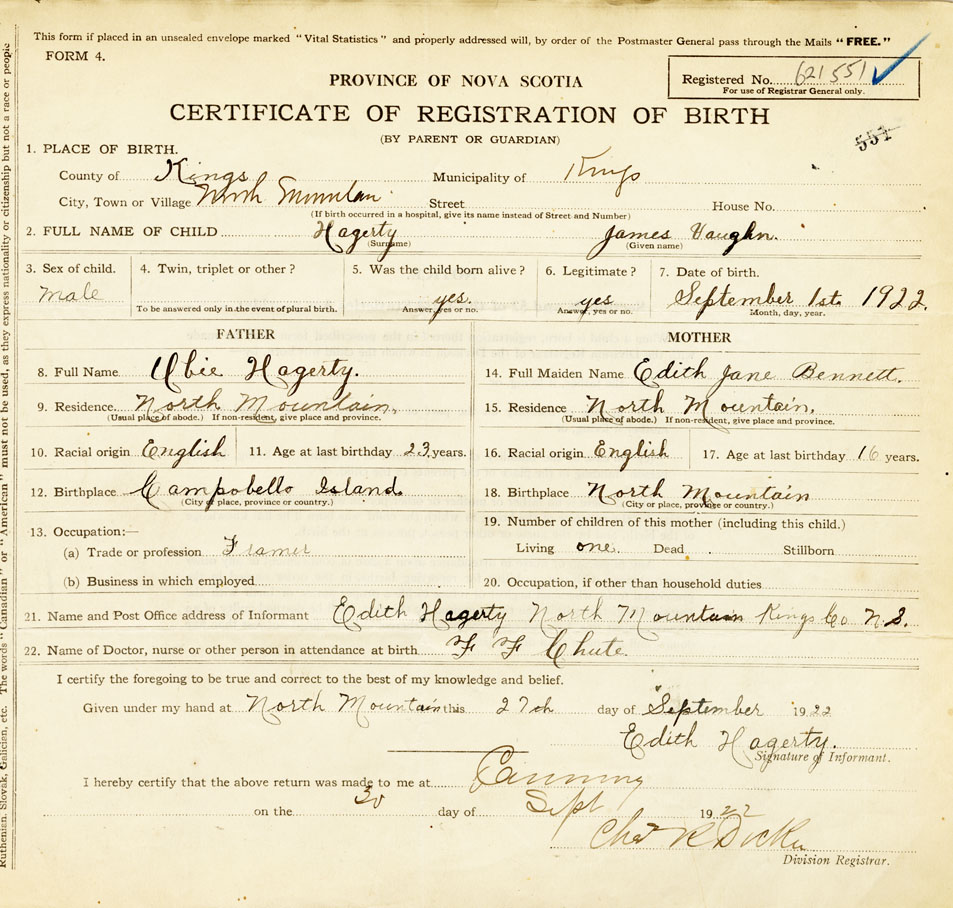 This form if placed in an unsealed envelope marked "Vital Statistics" and properly addressed will, by order of the Postmaster General pass through the Mails "FREE."
FORM 4.
Registered No. 621551
For use of Registrar General only.
PROVINCE OF NOVA SCOTIA
CERTIFICATE OF REGISTRATION OF BIRTH
(BY PARENT OR GUARDIAN)
551
1. PLACE OF BIRTH.
County of Kings Municipality of Kings
City, Town or Village North Mountain Street House No.
(If birth occurred in a hospital, give its name instead of Street and Number)
2. FULL NAME OF CHILD Hagerty James Vaughn.
(Surname) (Given name)
3. Sex of child. 4. Twin, triplet or other? 5. Was the child born alive? 6. Legitimate? 7. Date of birth.
Male yes. yes September 1st. 1922.
To be answered only in the event of plural birth. Answer, yes or no. Answer, yes or no. Month, day, year.
FATHER MOTHER
8. Full Name Hagerty. 14. Full Maiden Name Edith Jane Bennett.
9. Residence North Mountain. 15. Residence North Mountain.
(Usual place of abode.) If non-resident, give place and province. (Usual place of abode.) If non-resident, give place and province.
10. Racial origin English 11. Age at last birthday 23 years. 16. Racial origin English 17. Age at last birthday 16 years.
12. Birthplace Campobello Island. 18. Birthplace North Mountain
(City or place, province or country.) (City or place, province or country.)
13. Occupation:— 19. Number of children of this mother (including this child.)
(a) Trade or profession Living one. Dead Stillborn
(b) Business in which employed 20. Occupation, if other than household duties
21. Name and Post Office address of Informant Edith Hagerty North Mountain Kings Co N.S.
22. Name of Doctor, nurse or other person in attendance at birth F F Chute.
I certify the foregoing to be true and correct to the best of my knowledge and belief.
Given under my hand at North Mountain this 27th day of September 1922
Edith Hagerty.
Signature of Informant.
I hereby certify that the above return was made to me at Canning
on the 30 day of Sept 1922
Division Registrar.
Ruthenian, Slovak, Galician, etc. The words "Canadian" or "American" must not be used, as they express nationality or citizenship but not a race or people